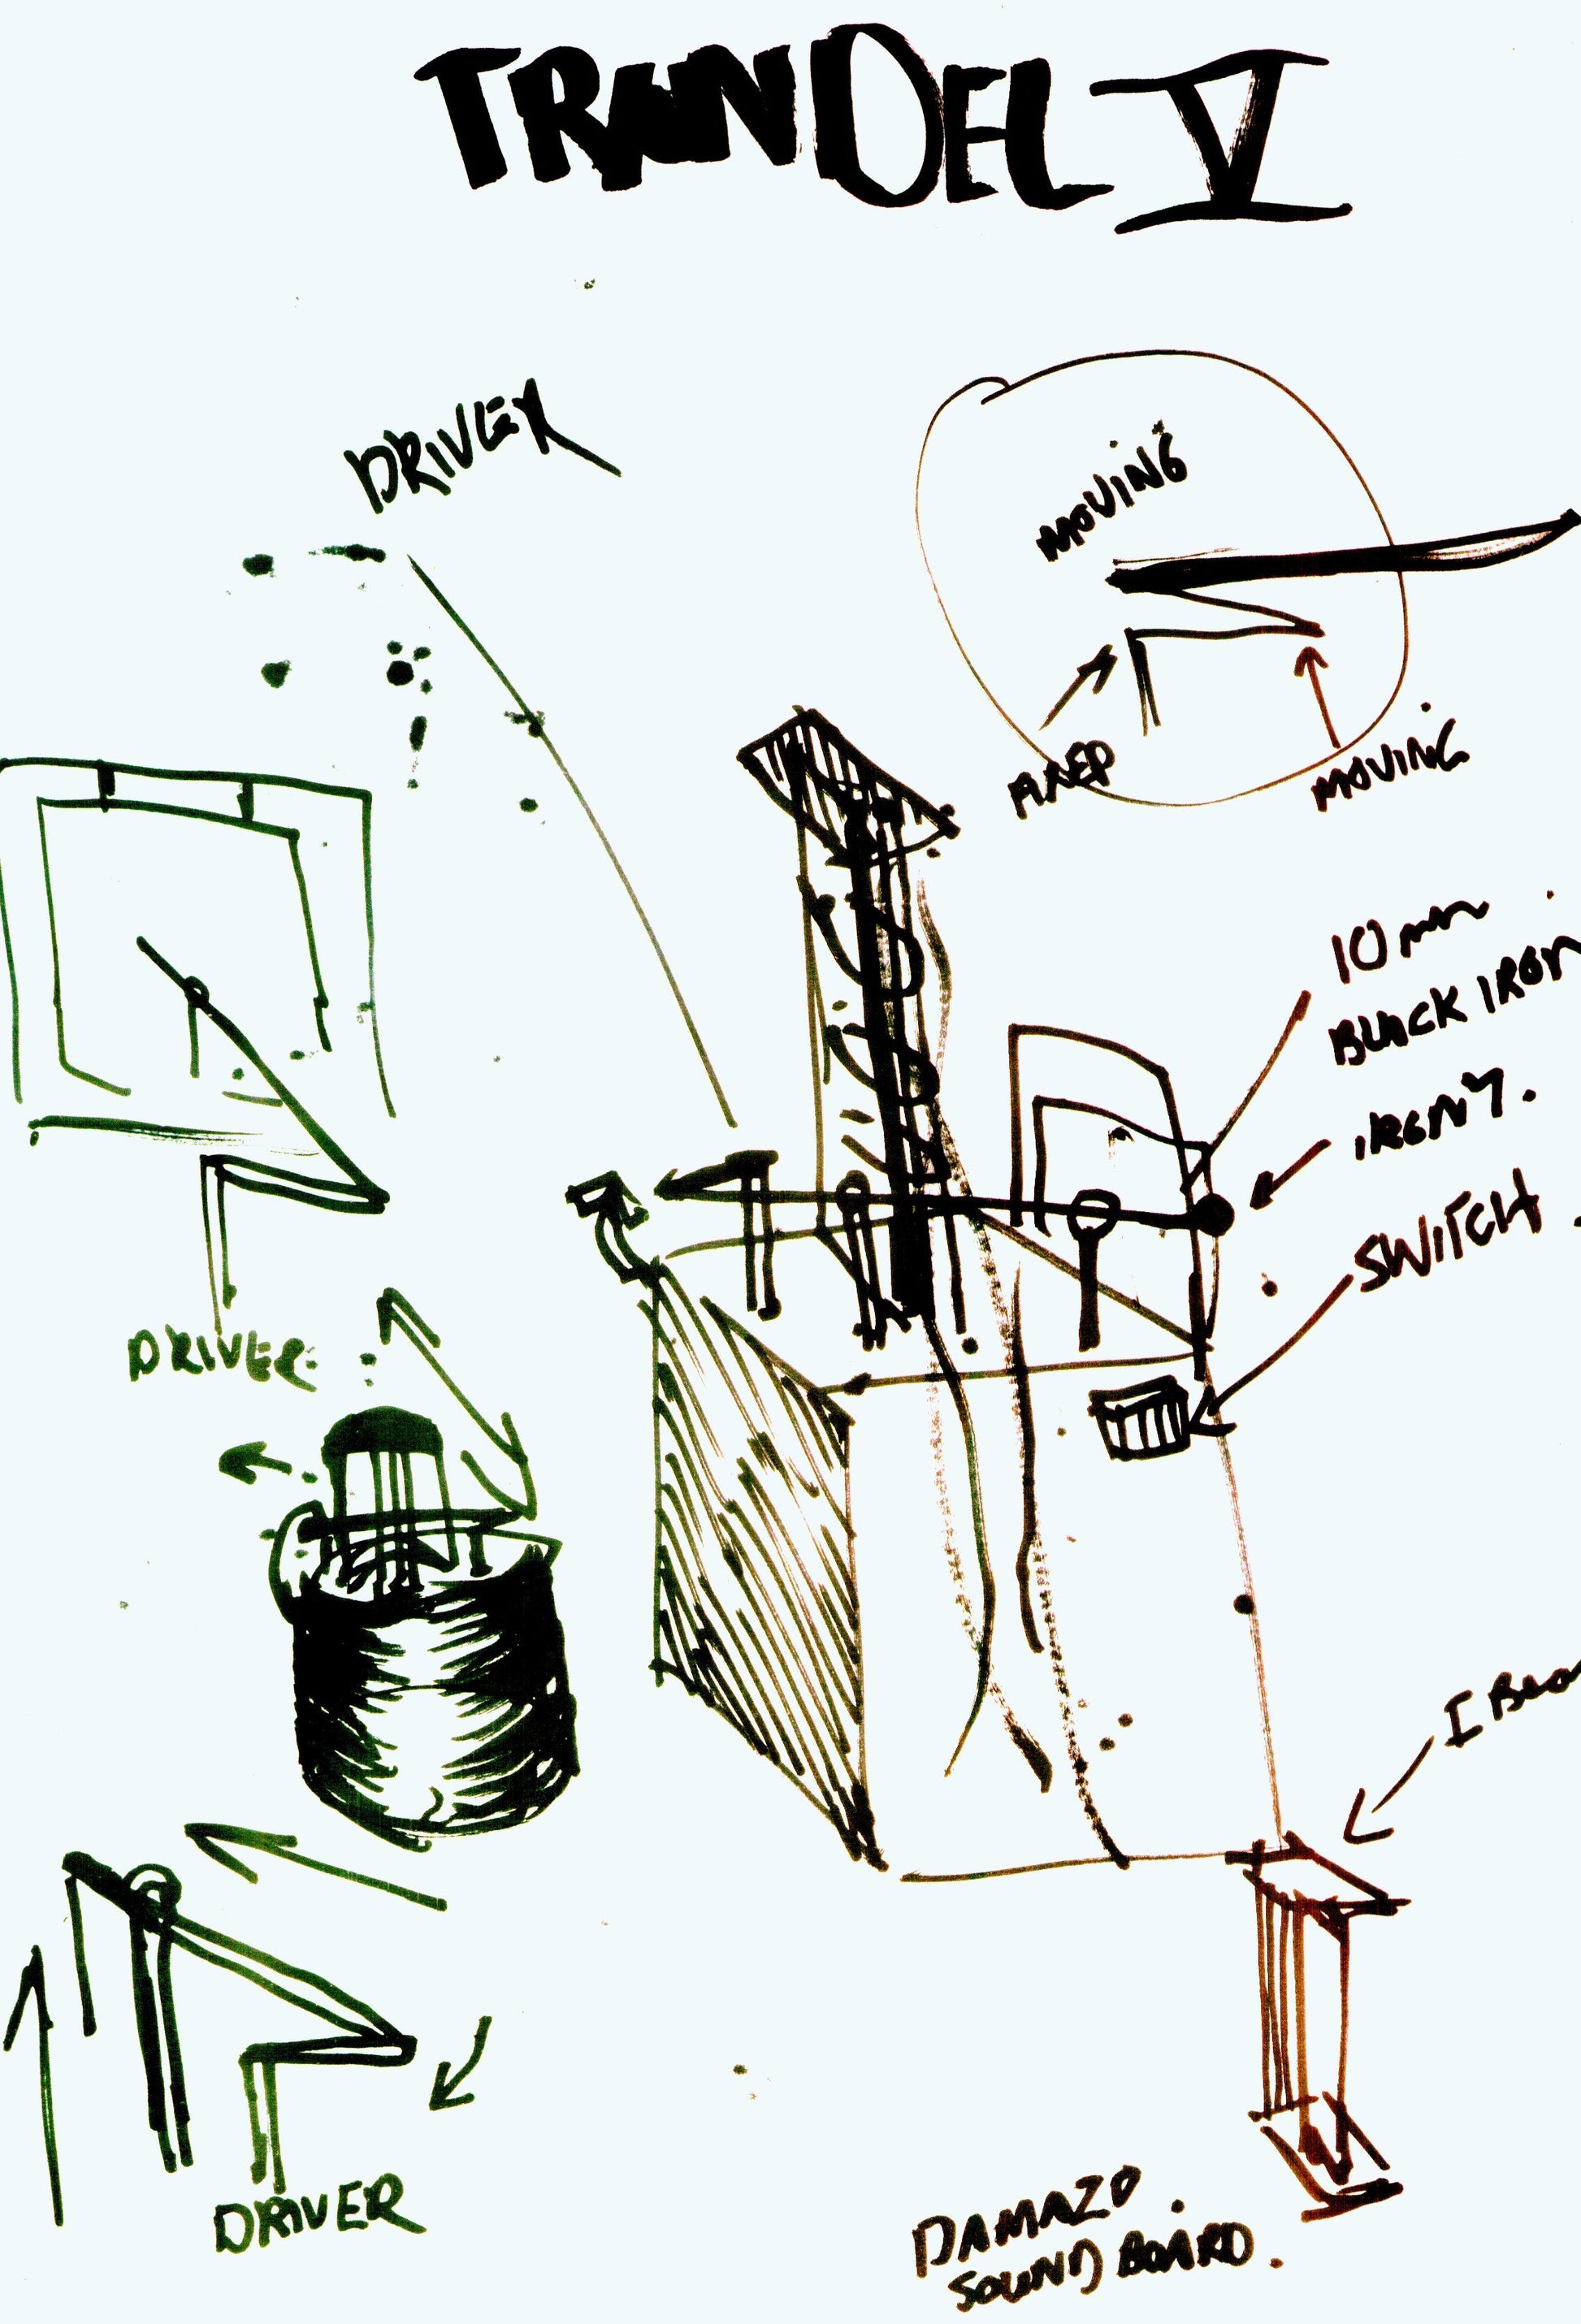 TRANDEL V
DRIVER
MOVING
FIXED
MOVING
10 mm
BLACK IRON
IRONY.
SWITCH.
DRIVER
I BEA
DRIVER
DAMAZO.
SOUND BOARD.